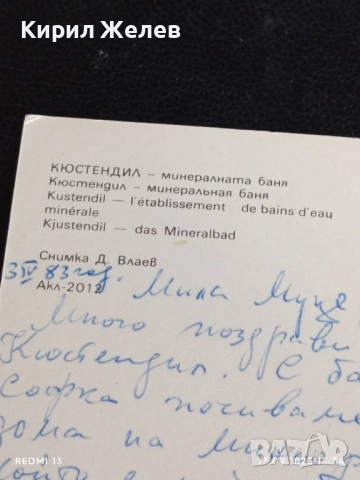 Кирил Желев
КЮСТЕНДИЛ – минералната баня
Кюстендил – минеральная баня
Kustendil – l'établissement de bains d'eau
minérale
Kjustendil – das Mineralbad
Снимка Д. Влаев
Акл-2012
3 IV 83 год.
Мила
Много поздрави
Кюстендил. С ба
Софка почиваме
дома на
REDMI 13